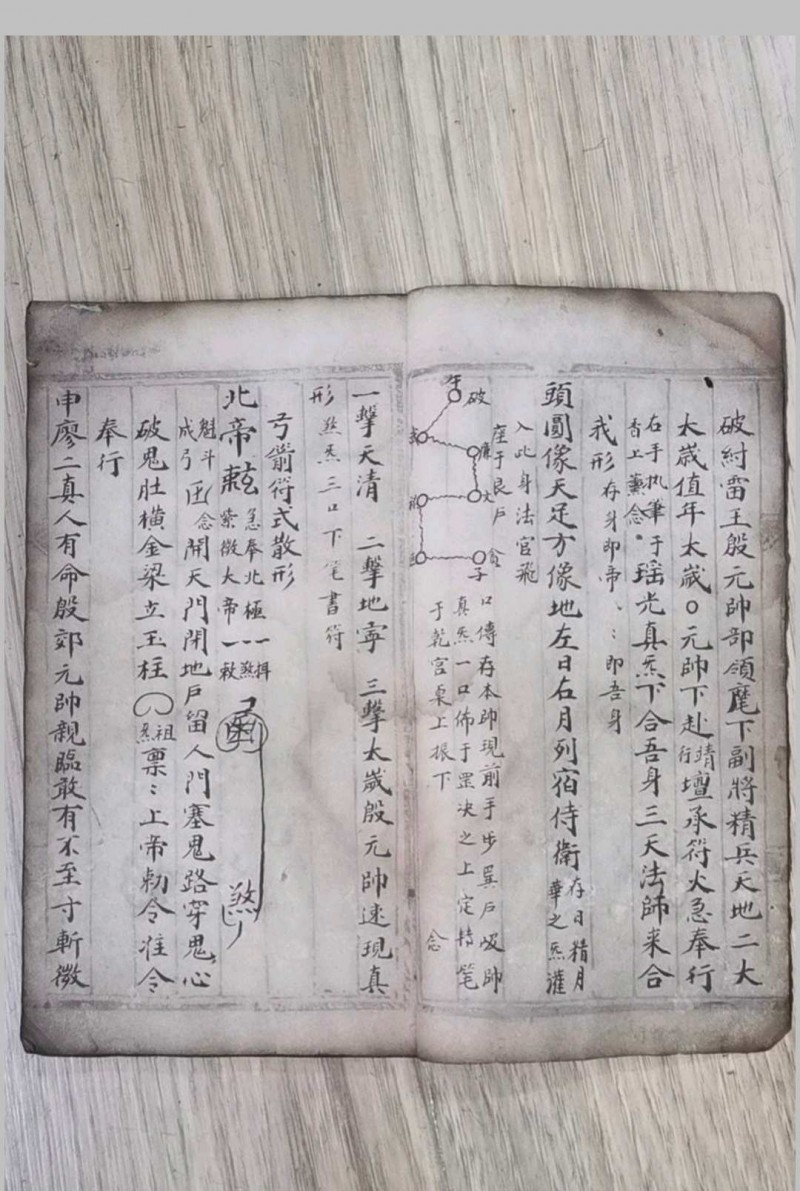 破紂雷王殷元帥部領麾下副將精兵天地二大
太歲值年太歲○元帥下赴靖行壇承符火急奉行
右手执筆于香上薰念瑶光真炁下合吾身三天法師来合
我形存身即帝、〻即吾身
頭圓像天足方像地左日右月列宿侍衛存日精月華之炁灌
入此身法官飛
座于艮戶
破
廉
文
貪
子
口傳存本帥現前手步巽戶吸帥
真炁一口佈于罡决之上定持笔
于乾宫桌上振下 念
一擊天清 二擊地寧 三擊太歲殷元帥速現真
形煞炁三口下笔書符
弓箭符式散形
北帝急奉北極紫微大帝一
魁斗成弓念開天門閉地戶留人門塞鬼路穿鬼心
破鬼肚橫金梁立玉柱祖炁禀〻上帝勅令准令
煞
奉行
申廖二真人有命殷郊元帥親臨敢有不至寸斬微